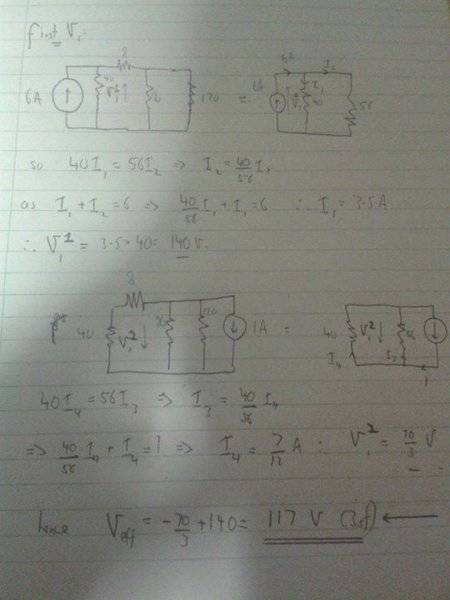 first V₁:
8
6A
40
V₁¹ ↑
120
=
I₂
40
56
so 40I₁ = 56I₂ ⇒ I₂ = 40/56 I₁
as I₁ + I₂ = 6 ⇒ 40/56 I₁ + I₁ = 6 ∴ I₁ = 3.5A
∴ V₁¹ = 3.5×40 = 140 V.
8
40
V₁² ↓
1A =
40
V₁² ↓
I₄
I₃
1
40I₄ = 56I₃ ⇒ I₃ = 40/56 I₄
⇒ 40/56 I₄ + I₄ = 1 ⇒ I₄ = 7/12 A ∴ V₁² = 70/3 V
hence V_eff = -70/3 + 140 = 117 V (3sf) ←